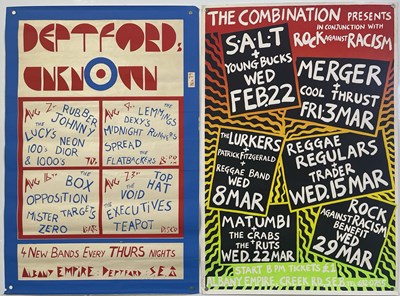 DEPTFORD:
UNKNOWN
AUG 2nd
RUBBER
JOHNNY
LUCY'S NEON
100's DIOR
& 1000's 70p.
AUG 9th
THE LEMMINGS
DEXY'S
MIDNIGHT RUNNERS
SPREAD
THE FLATBACKERS
AUG 16th
THE BOX
OPPOSITION
MISTER TARGETS
ZERO
AUG 23rd
TOP
HAT
THE VOID
THE EXECUTIVES
TEAPOT
4 NEW BANDS EVERY THURS NIGHTS
ALBANY EMPIRE: DEPTFORD SE8
THE COMBINATION PRESENTS
IN CONJUNCTION WITH
ROCK AGAINST RACISM
SALT
+
YOUNG BUCKS
WED
FEB.22
MERGER
+
COOL THRUST
FRI 3 MAR
THE LURKERS
+
PATRICK FITZGERALD
+
REGGAE BAND
WED
8 MAR
REGGAE
REGULARS
+
TRADER
WED. 15 MAR
MATUMBI
THE CRABS
THE 'RUTS
WED. 22 MAR
ROCK
AGAINST RACISM
BENEFIT
WED
29 MAR
START 8PM TICKETS £1
ALBANY EMPIRE, CREEK RD. SE8